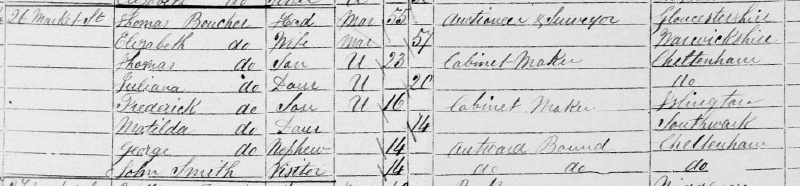 26 Market St Thomas Boucher Head Mar 53 Auctioneer & Surveyor Gloucestershire
Elizabeth do Wife Mar 51 Warwickshire
Thomas do Son U 23 Cabinet Maker Cheltenham
Juliana do Daur U 20 do
Frederick do Son U 16 Cabinet Maker Islington
Matilda do Daur 14 Southwark
George do Nephew 14 Outward Bound Cheltenham
John Smith Visitor 14 do do do